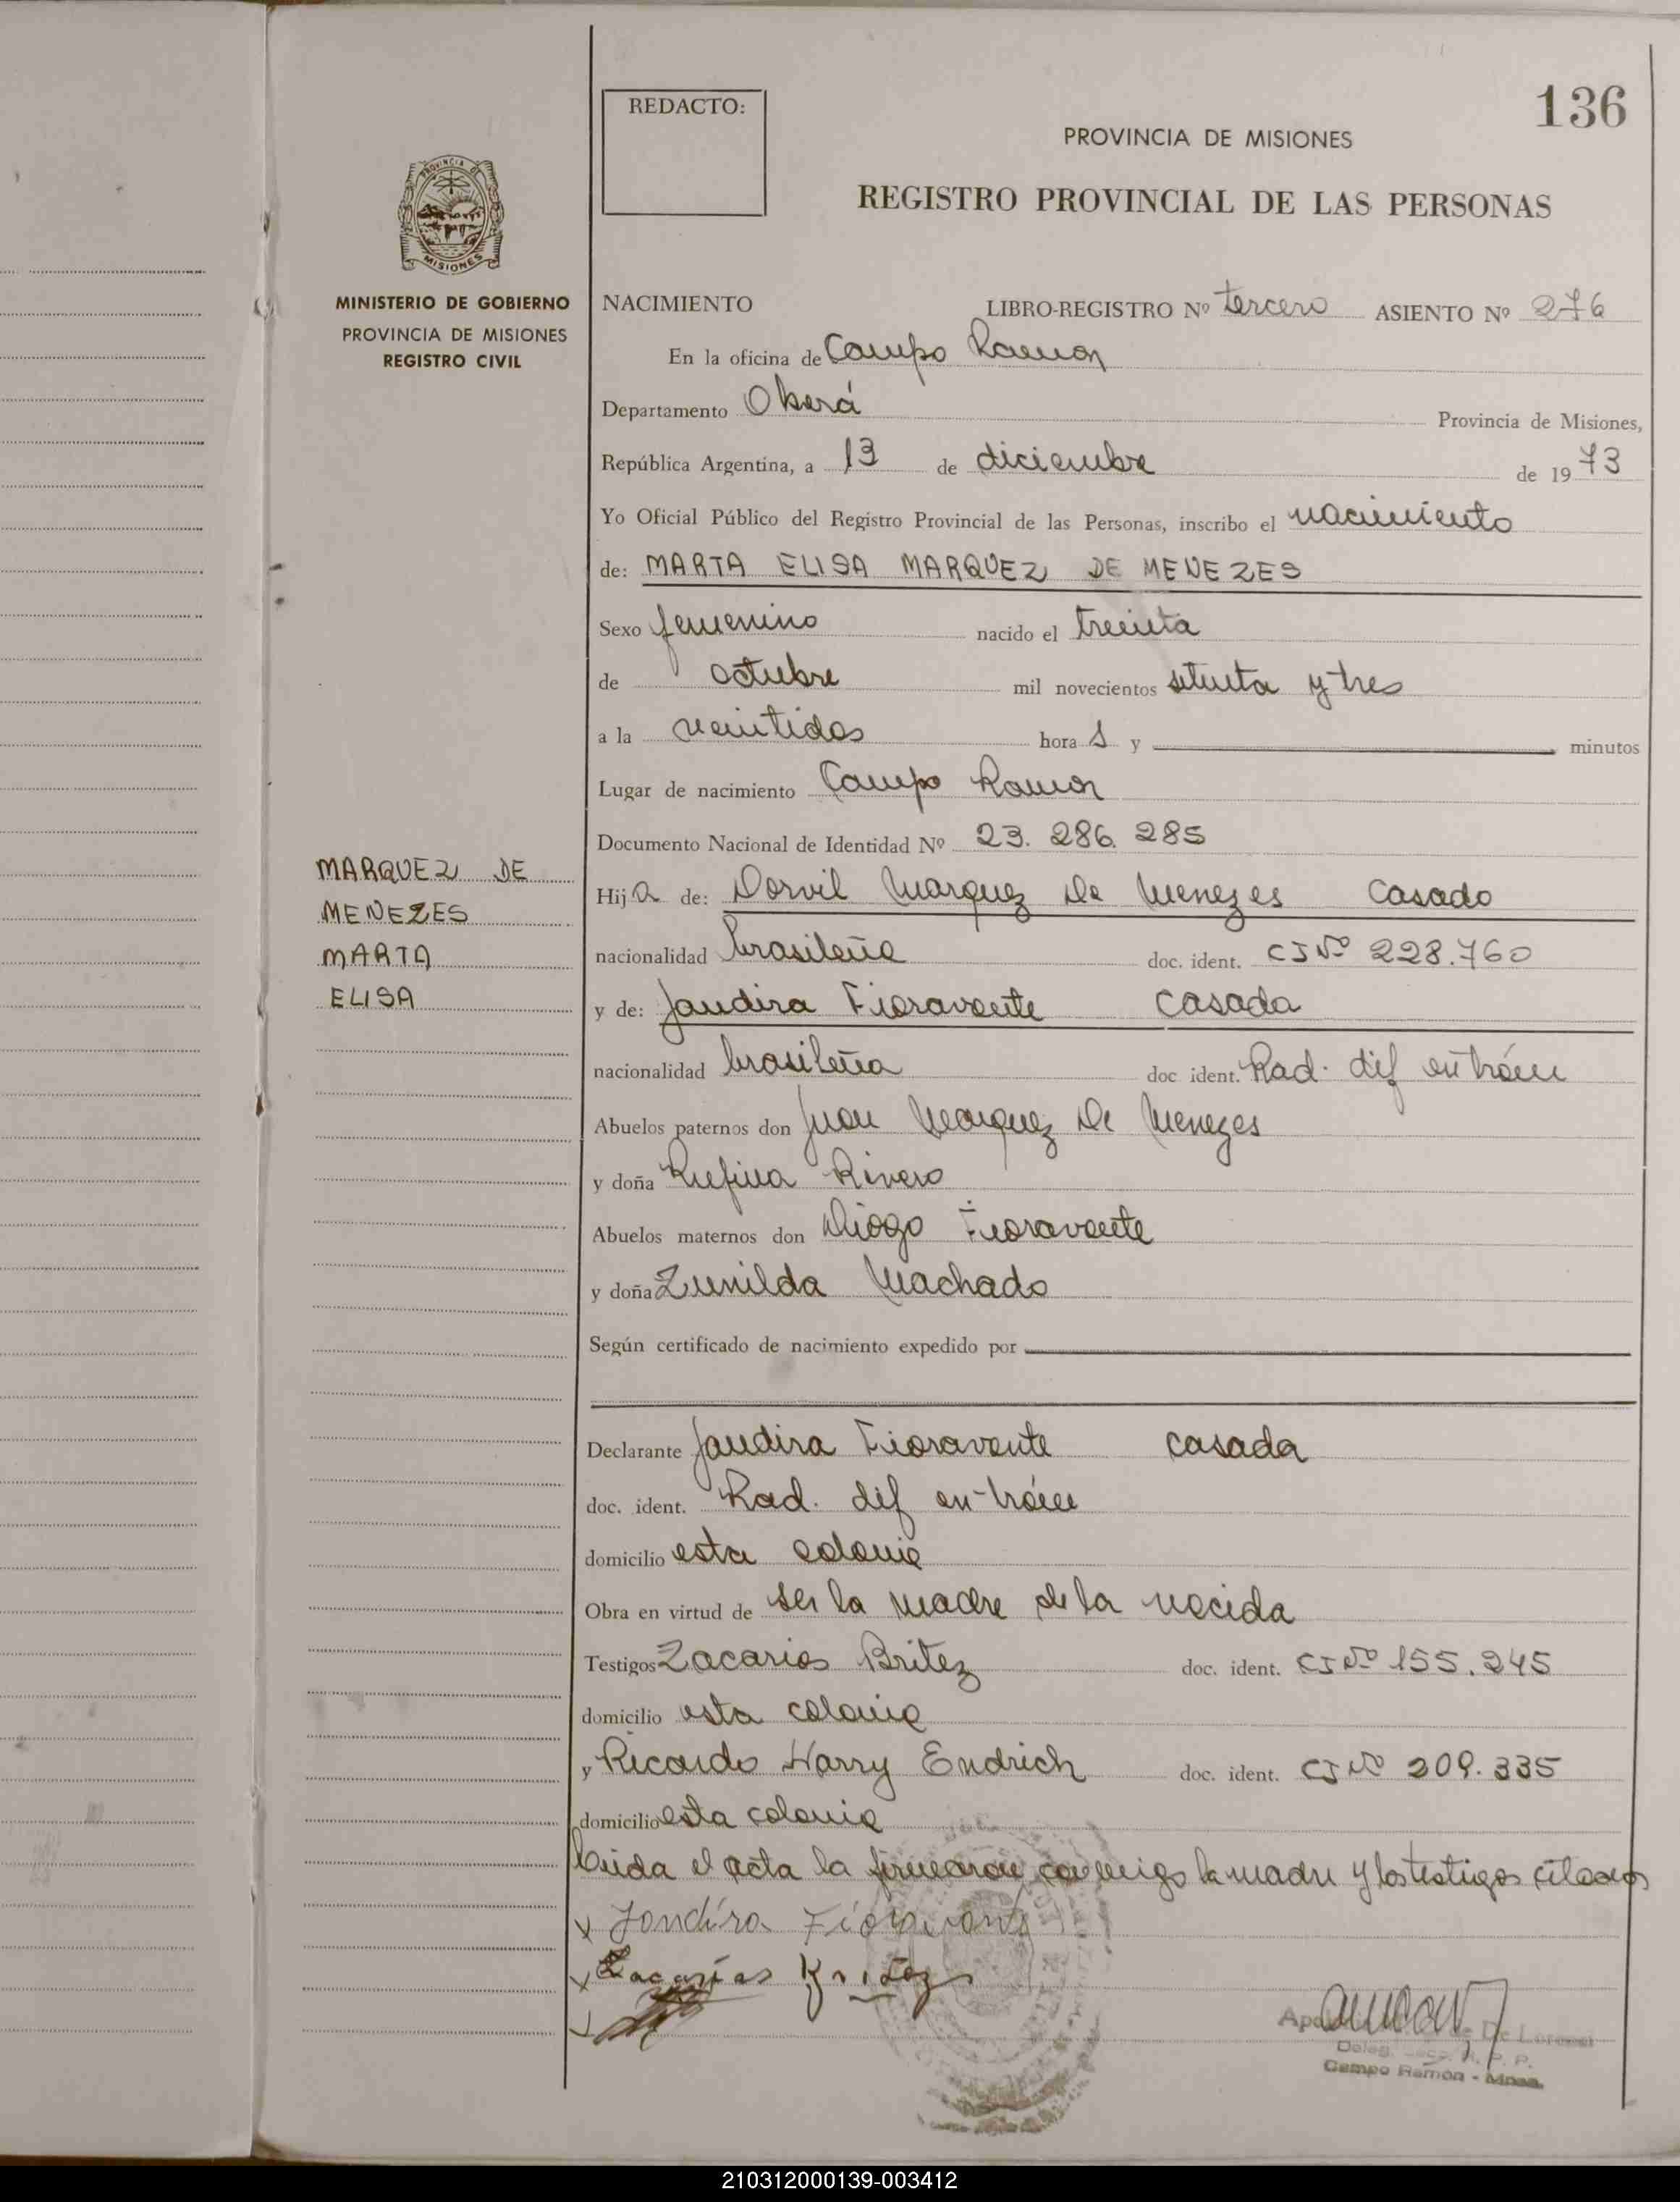 136
REDACTO:
PROVINCIA DE MISIONES
REGISTRO PROVINCIAL DE LAS PERSONAS
PROVINCIA DE
MISIONES
MINISTERIO DE GOBIERNO
PROVINCIA DE MISIONES
REGISTRO CIVIL
NACIMIENTO LIBRO-REGISTRO Nº tercero ASIENTO Nº 276
En la oficina de Campo Ramon
Departamento Oberá Provincia de Misiones,
República Argentina, a 13 de diciembre de 1973
Yo Oficial Público del Registro Provincial de las Personas, inscribo el nacimiento
de: MARTA ELISA MARQUEZ DE MENEZES
Sexo femenino nacido el treinta
de octubre mil novecientos setenta y tres
a la veintidos hora s y minutos
Lugar de nacimiento Campo Ramon
Documento Nacional de Identidad Nº 23.286.285
MARQUEZ DE
MENEZES
MARTA
ELISA
Hija de: Dorvil Marquez De Menezes Casado
nacionalidad brasileña doc. ident. CI Nº 228.760
y de: Jandira Fioravante Casada
nacionalidad brasileña doc ident. Rad. dif en trám
Abuelos paternos don Juan Marquez De Menezes
y doña Rufina Rivero
Abuelos maternos don Diogo Fioravante
y doña Zunilda Machado
Según certificado de nacimiento expedido por
Declarante Jandira Fioravante casada
doc. ident. Rad. dif en trám
domicilio esta colonia
Obra en virtud de ser la madre de la nacida
Testigos Zacarias Britez doc. ident. CI Nº 155.245
domicilio esta colonia
y Ricardo Harry Endrich doc. ident. CI Nº 209.335
domicilio esta colonia
leida el acta la firmaron conmigo la madre y los testigos citados
x Jandira Fioravante
x Zacarias Britez
x
De Lorenzi
R. P. P.
Campo Ramón - Mnes.
210312000139-003412